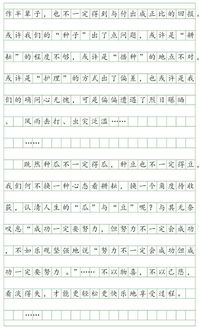 作半辈子，也不一定得到与付出成正比的回报。
或许我们的“种子”出了点问题，或许是“耕
耘”的程度不够，或许是“播种”的地点不对，
或许是“护理”的方式出了偏差，也或许是我
们的确问心无愧，可是偏偏遭遇了烈日曝晒
、风雨击打、虫灾泛滥……
……
既然种瓜不一定得瓜，种豆也不一定得豆，
我们何不换一种心态看耕耘，换一个角度待收
获，认清人生的“瓜”与“豆”呢？与其无奈
叹息“成功一定要努力，但努力不一定会成功
，不如乐观坚强地说“努力不一定会成功但成
功一定要努力。”……不以物喜，不以己悲，
看淡得失，才能更轻松更快乐地享受过程。